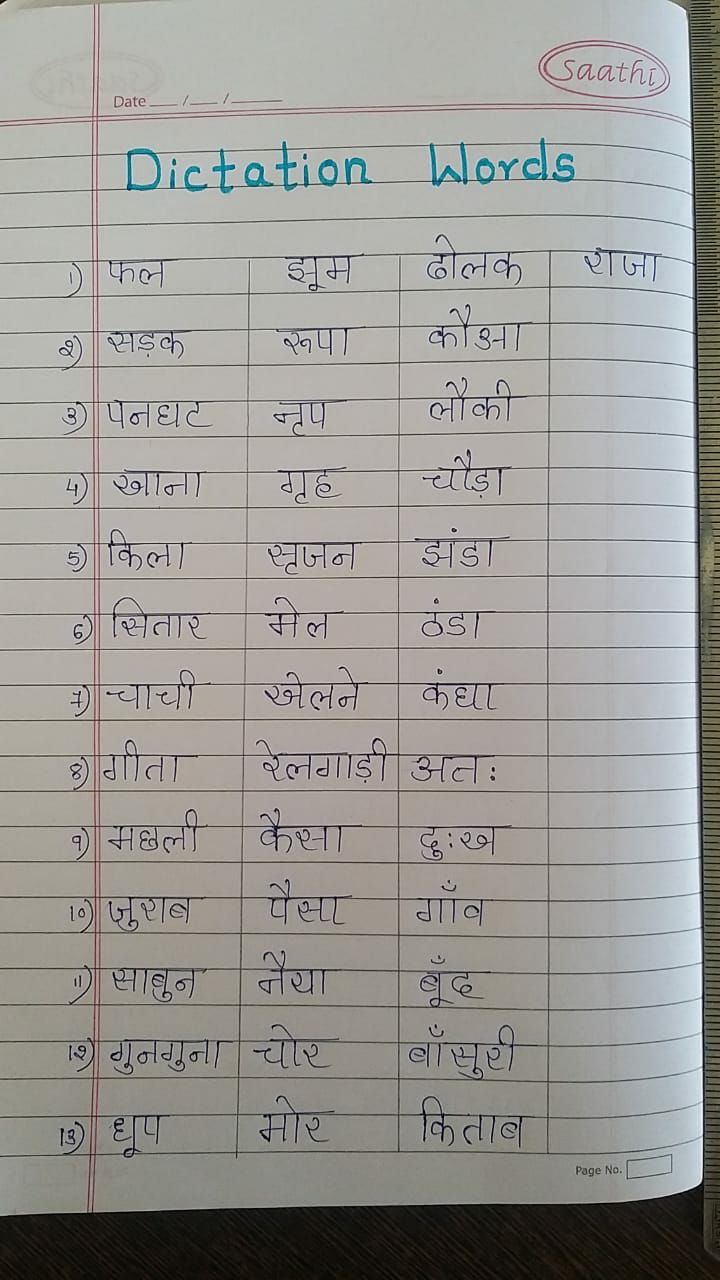 Saathi
Date __/__/____
Dictation Words
1) फल झूम ढोलक राजा
2) सड़क रूपा कौआ
3) पनघट नृप लौकी
4) खाना गृह चौड़ा
5) किला सृजन झंडा
6) सितार मेल ठंडा
7) चाची खेलने कंघा
8) गीता रेलगाड़ी अतः
9) मछली कैसा दुःख
10) जुराब पैसा गाँव
11) साबुन नैया बूँद
12) गुनगुना चोर बाँसुरी
13) धूप मोर किताब
Page No.